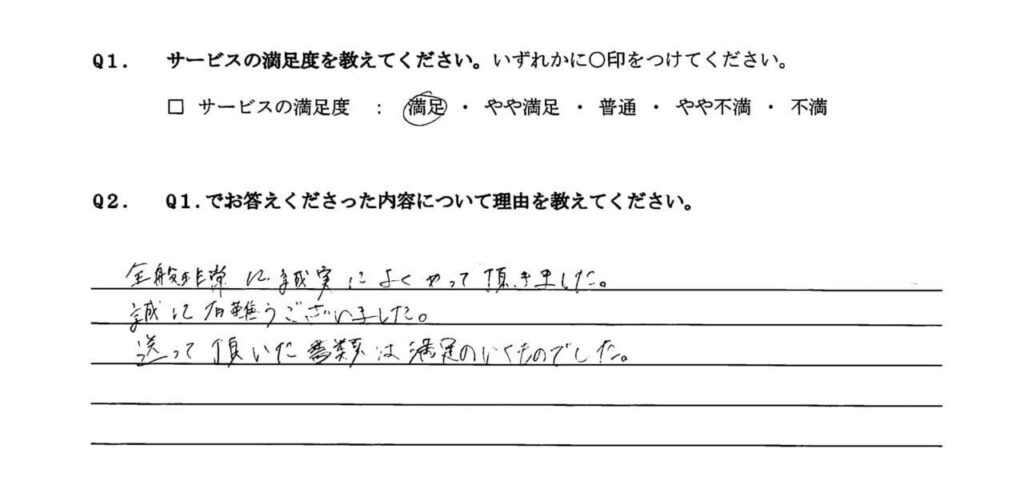 Q1. サービスの満足度を教えてください。いずれかに〇印をつけてください。
□ サービスの満足度 : 満足 ・ やや満足 ・ 普通 ・ やや不満 ・ 不満
Q2. Q1.でお答えくださった内容について理由を教えてください。
全般非常に誠実によくやって頂きました。
誠に有難うございました。
送って頂いた書類は満足のいくものでした。